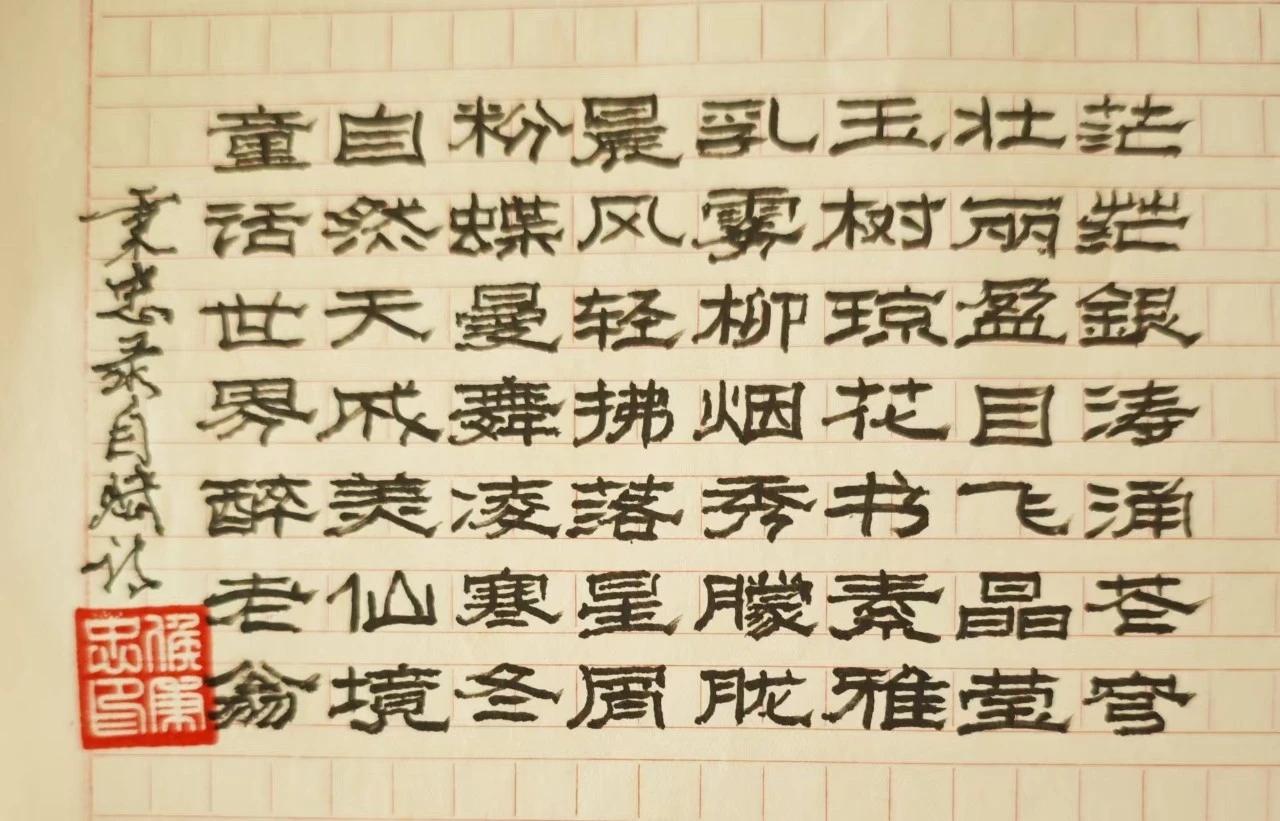 茫茫銀涛涌苍穹
壮丽盈目飞晶莹
玉树琼花书素雅
乳雾柳烟秀朦胧
晨风轻拂落星屑
粉蝶曼舞凌寒冬
自然天成美仙境
童话世界醉老翁
秉忠录自赋诗
侯秉忠印